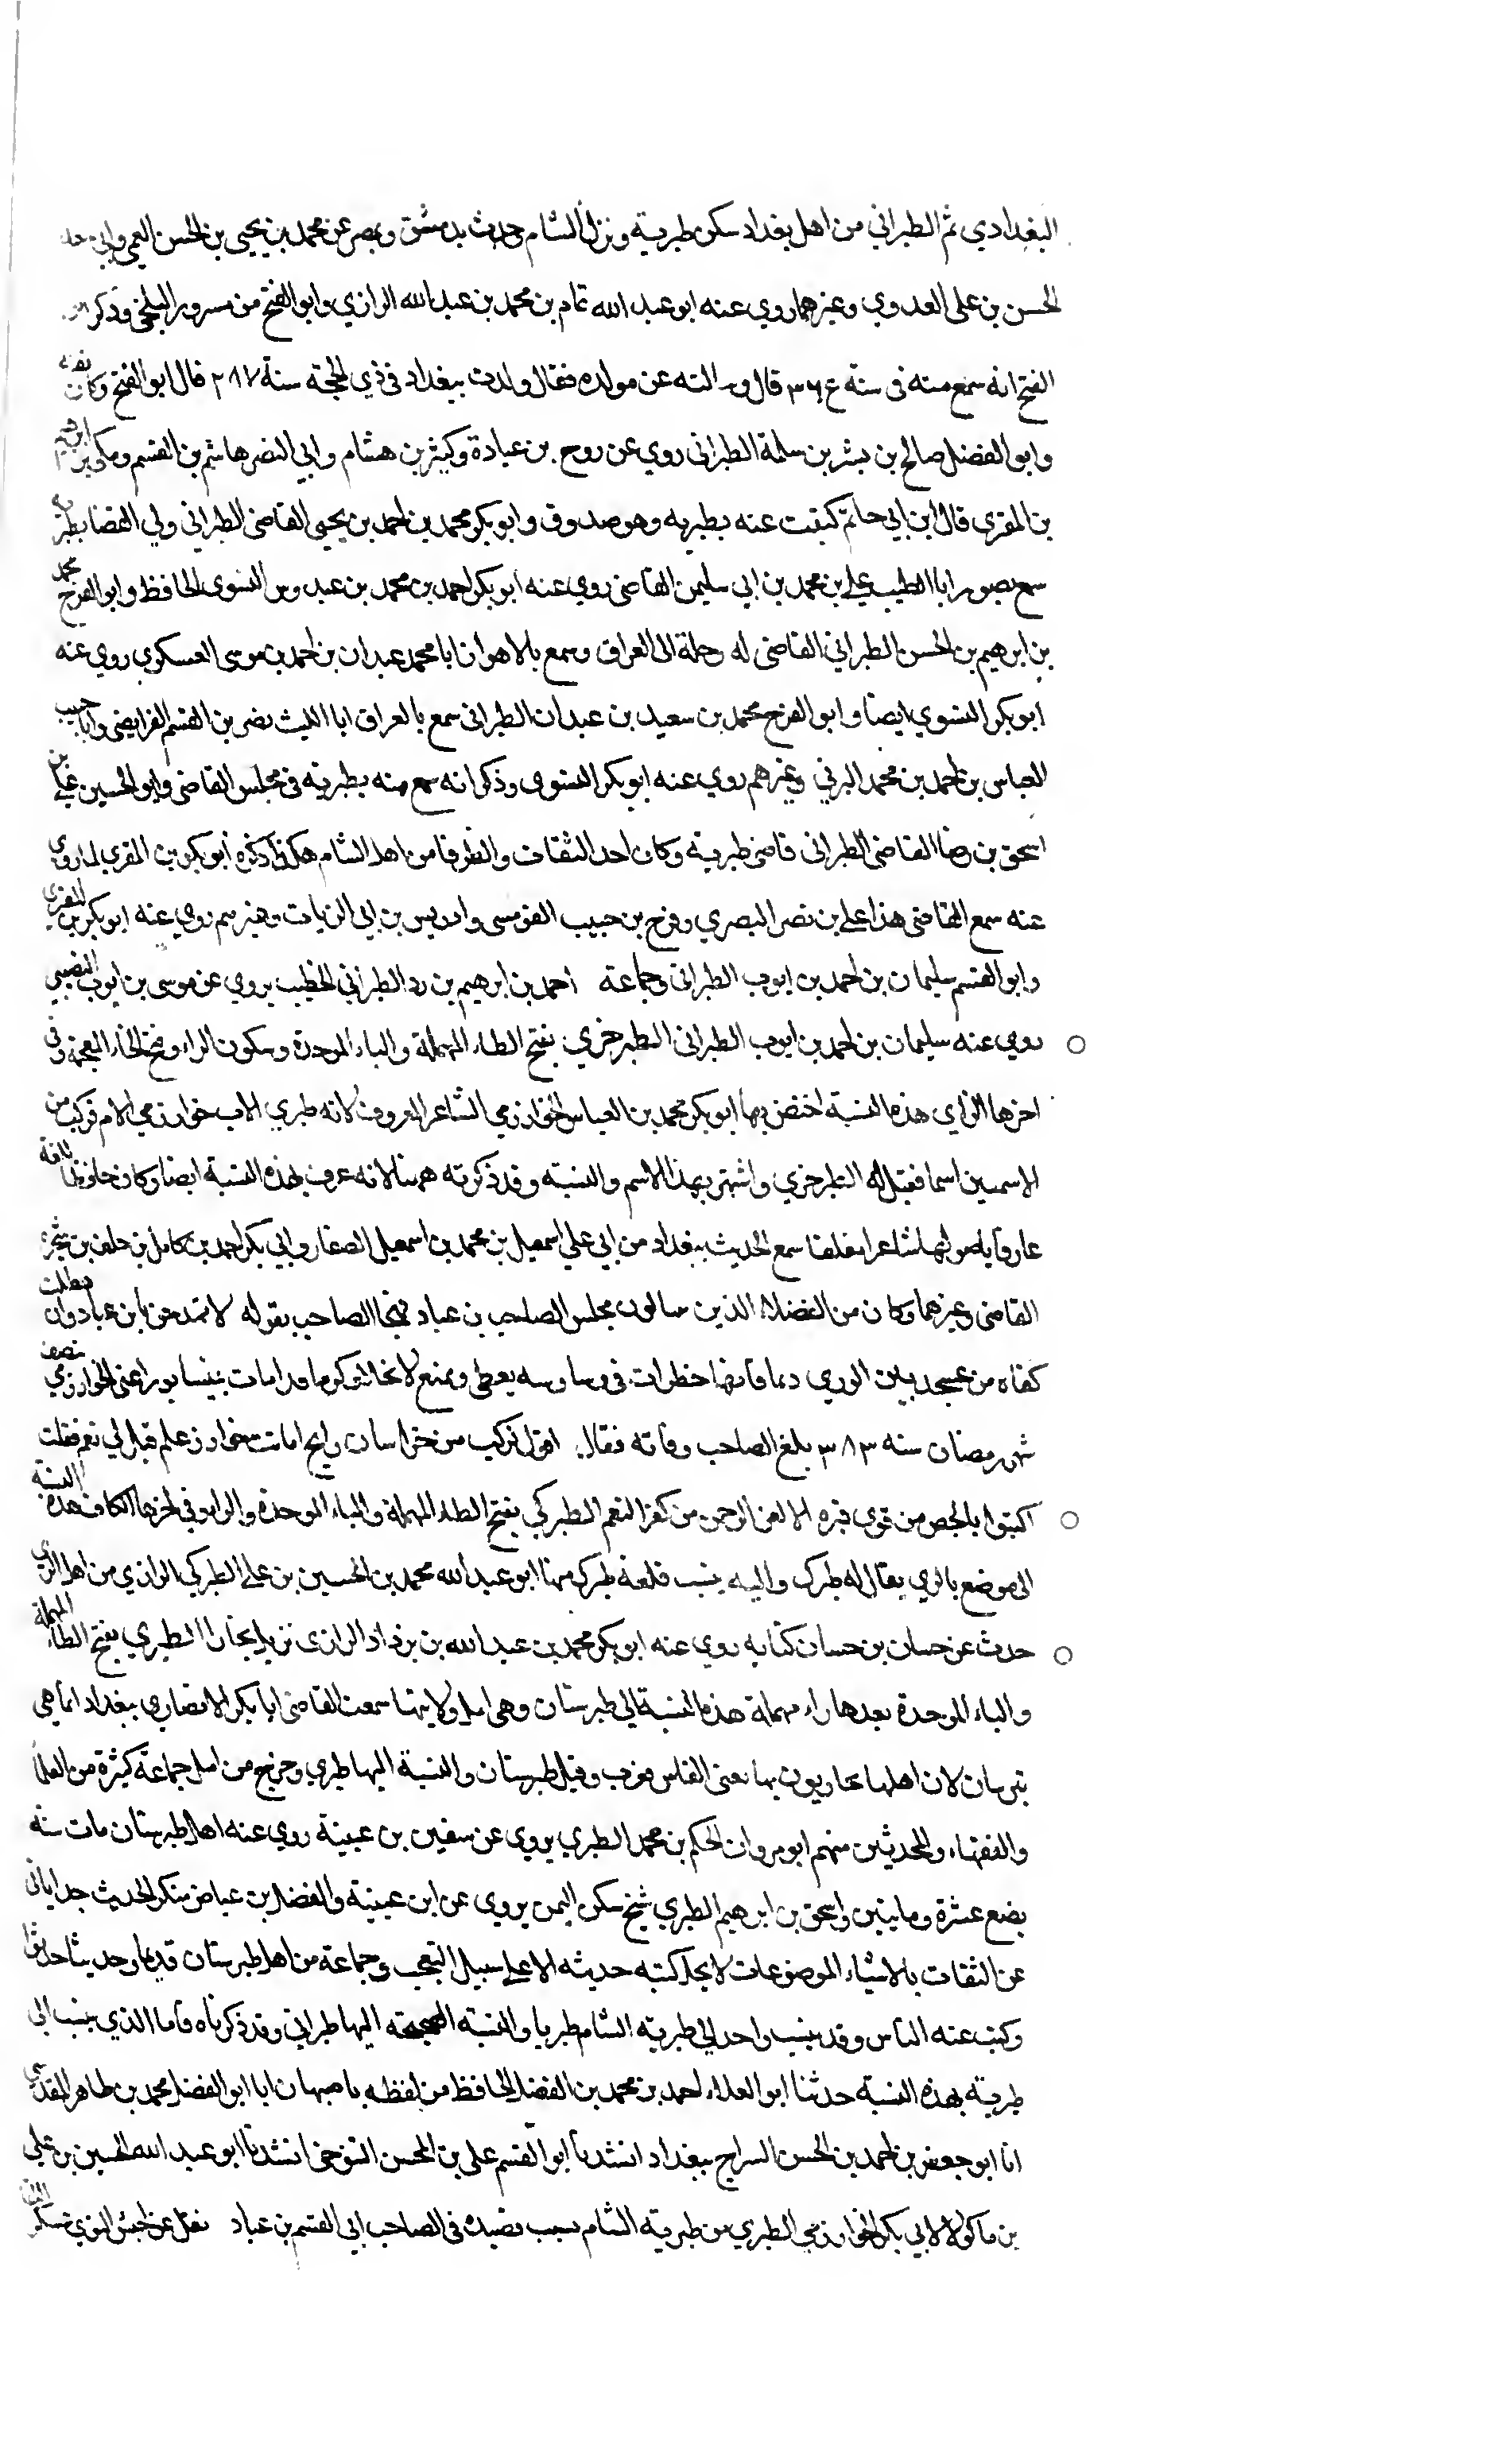 البغدادي ثم الطبراني من اهل بغداد سكن طبرية ونزل الشام وحدث بدمشق وبمصر عن محمد بن يحيى بن الحسن العمي وابي
الحسن بن على العدوي وغيرهما روي عنه ابو عبد الله تمام بن محمد بن عبد الله الرازي وابو الفتح من مسرور البلخي وذكر
الفتح انه سمع منه فى سنة ٣٦٤ قال وسالته عن مولده فقال ولدت ببغداد فى ذي الحجة سنة ٢٨٧ قال ابو الفتح وكان ثقة
وابو الفضل صالح بن بشر بن سلمة الطبرانى روي عن روح بن عبادة وكثير بن هشام وابي النضر هاشم بن القسم ومكي بن ابرهيم
بن المقري قال ابن ابي حاتم كتبت عنه بطبريه وهو صدوق وابو بكر محمد بن احمد بن يحيى القاضى الطبراني ولي القضا بطبرية
سمع بصور ابا الطيب علي بن محمد بن ابي سليمن القاضى روي عنه ابو بكر احمد بن محمد بن عبدوس النسوى الحافظ وابو الفرج محمد
بن ابرهيم بن الحسن الطبراني القاضى له رحلة الى العراق وسمع بالاهواز ابا محمد عبدان بن احمد بن موسى العسكري روي عنه
ابو بكر النسوي ايضا وابو الفرج محمد بن سعيد بن عبدان الطبرانى سمع بالعراق ابا الليث نصر بن القسم الفرايضى وابا حبيب
العباس بن احمد بن محمد البرني وغيرهم روي عنه ابو بكر النسوى وذكر انه سمع منه بطبرية فى مجلس القاضى وابو الحسين علي بن
اسحق بن رضا القاضى الطبرانى قاضى طبرية وكان احد الثقات والظرفا من اهل الشام هكذا ذكره ابو بكر بن المقري لما روي
عنه سمع القاضى هذا علي بن نصر البصري وفرج بن حبيب القومسى وادريس بن ابي الزيات وغيرهم روى عنه ابو بكر بن المقري
وابو القسم سليمان بن احمد بن ايوب الطبرانى وجماعة احمد بن ابرهيم بن رد الطبرانى الخطيب يروي عن موسى بن ايوب النصيبي
روي عنه سليمان بن احمد بن ايوب الطبرانى الطبرخزي بفتح الطاء المهملة والباء الموحدة وسكون الراء وفتح الخاء المعجمة وفى
اخرها الزاي هذه النسبة اختص بها ابو بكر محمد بن العباس الخوارزمي الشاعر المعروف لانه طبري الاب خوارزمي الام فركب من
الاسمين اسما فقيل له الطبرخزي واشتهر بهذا الاسم والنسبة وقد ذكرته ههنا لانه عرف بهذه النسبة ايضا وكان حافظا للغة
عارفا باصولها شاعرا مفلقا سمع الحديث ببغداد من ابي علي اسمعيل بن محمد بن اسمعيل الصفار وابي بكر احمد بن كامل بن خلف بن شجرة
القاضى وغيرهما وكان من الفضلاء الذين مجلس الصاحب بن عباد فهجا الصاحب بقوله لا تمدحن ابن عباد وان هطلت
كفاه من عسجد بين الوري ديما فانها خطرات فى وساوسه يعطى ويمنع لا بخلا ولا كرما قد امات بنيسابور اعنى الخوارزمي نصف
شهر رمضان سنه ٣٨٣ بلغ الصاحب وفاته فقال اقول لركب من خراسان رايح امات خوارزميكم قيل لي نعم فقلت
اكتبوا بالجص من فوق قبره الا لعن الرحمن من كفر النعم الطبركي بفتح الطاء المهملة والباء الموحدة والراء وفي اخرها الكاف هذه النسبة
الى موضع بالري يقال له طبرك واليه ينسب قلعة طبرك منها ابو عبد الله محمد بن الحسين بن علي الطبركي الرازي من اهل الري
حدث عن حسان بن حسان كتابه روي عنه ابو بكر محمد بن عبد الله بن يزداد الرازى نزيل بخارا الطبري بفتح الطاء المهملة
والباء الموحدة بعدها راء مهملة هذه النسبة الي طبرستان وهى امل وولايتها سمعت القاضى ابا بكر الانصاري ببغداد انما هى
تبرستان لان اهلها يحاربون بها يعنى الفاس فعرب وقيل طبرستان والنسبة اليها طبري وخرج من امل جماعة كثيرة من العلما
والفقهاء والمحدثين منهم ابو مروان الحكم بن محمد الطبري يروى عن سفين بن عيينة روي عنه اهل طبرستان مات سنه
بضع عشرة ومايتين واسحق بن ابرهيم الطبري شيخ سكن اليمن يروى عن ابن عيينة والفضيل بن عياض منكر الحديث جدا ياتى
عن الثقات بالاشياء الموضوعات لا يحل كتبة حديثه الا على سبيل التعجب وجماعة من اهل طبرستان قديما وحديثا حدثوا
وكتب عنه الناس وقد ينسب واحد الي طبرية الشام طبريا والنسبة الصحيحة اليها طبراني وقد ذكرناه فاما الذي ينسب الى
طبرية بهذه النسبة حدثنا ابو العلاء احمد بن محمد بن الفضل الحافظ من لفظه باصبهان ابا ابو الفضل محمد بن طاهر المقدسي
انا ابو جعفر بن احمد بن الحسن السراج ببغداد انشدنا ابو القسم على بن المحسن التنوخى انشدنا ابو عبد الله الحسين بن على
بن ماكولا لابي بكر الخوارزمي الطبري من طبرية الشام بسبب قصيده فى الصاحب ابي القسم بن عباد